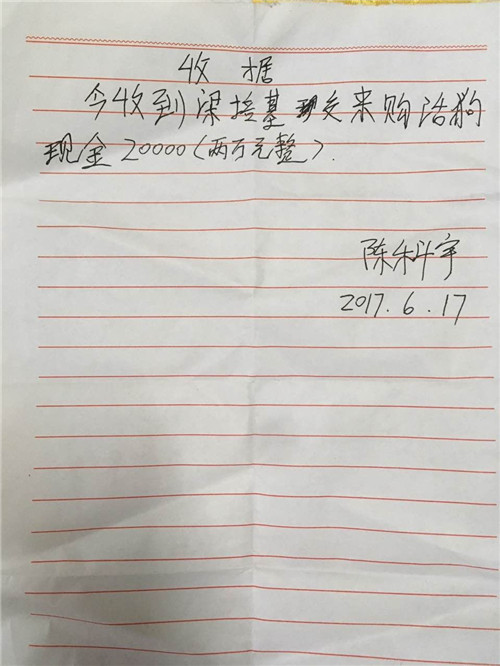 收据
今收到梁培基交来购活狗
现金20000(两万元整).
陈科宇
2017.6.17